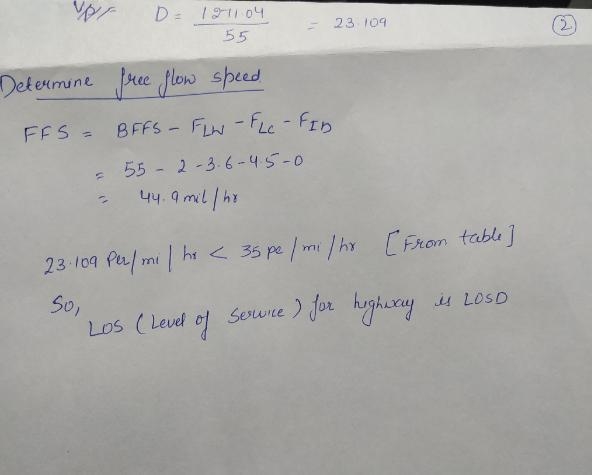 D = 1271.04 / 55 = 23.109
2
Determine free flow speed
FFS = BFFS - FLW - FLC - FID
= 55 - 2 - 3.6 - 4.5 - 0
= 44.9 mil/hr
23.109 Per/mi/hr < 35 pe/mi/hr [From table]
So,
LOS (Level of Service) for highway is LOSD